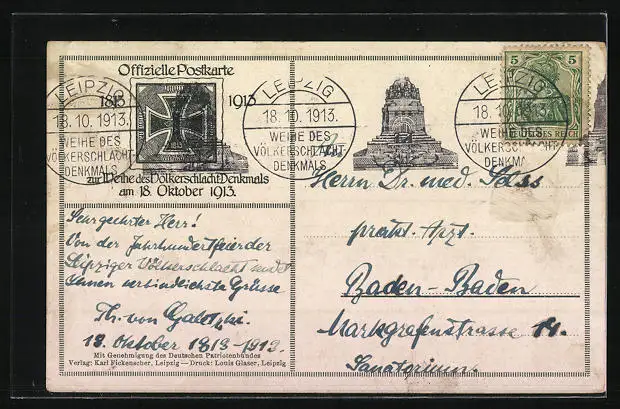 Offizielle Postkarte
1813 1913
zur Weihe des Völkerschlacht-Denkmals
am 18. Oktober 1913.
LEIPZIG
18.10.1913.
WEIHE DES
VÖLKERSCHLACHT-
DENKMALS
LEIPZIG
18.10.1913.
WEIHE DES
VÖLKERSCHLACHT-
DENKMALS
LEIPZIG
18.10.1913.
WEIHE DES
VÖLKERSCHLACHT
DENKMA
5 5
DEUTSCHES REICH
Sehr geehrter Herr!
Von der Jahrhundertfeier der
Leipziger Völkerschlacht sendet
Ihnen verbindlichste Grüsse
Th. von
18. Oktober 1813-1913.
Mit Genehmigung des Deutschen Patriotenbundes
Verlag: Karl Fickenscher, Leipzig — Druck: Louis Glaser, Leipzig
Herrn Dr. med.
prakt. Arzt.
Baden-Baden
Markgrafenstrasse 14.
Sanatorium.